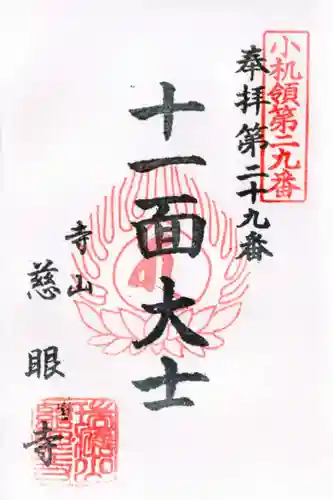 小机領第二九番
奉拝第二十九番
十一面大士
寺山
慈眼寺